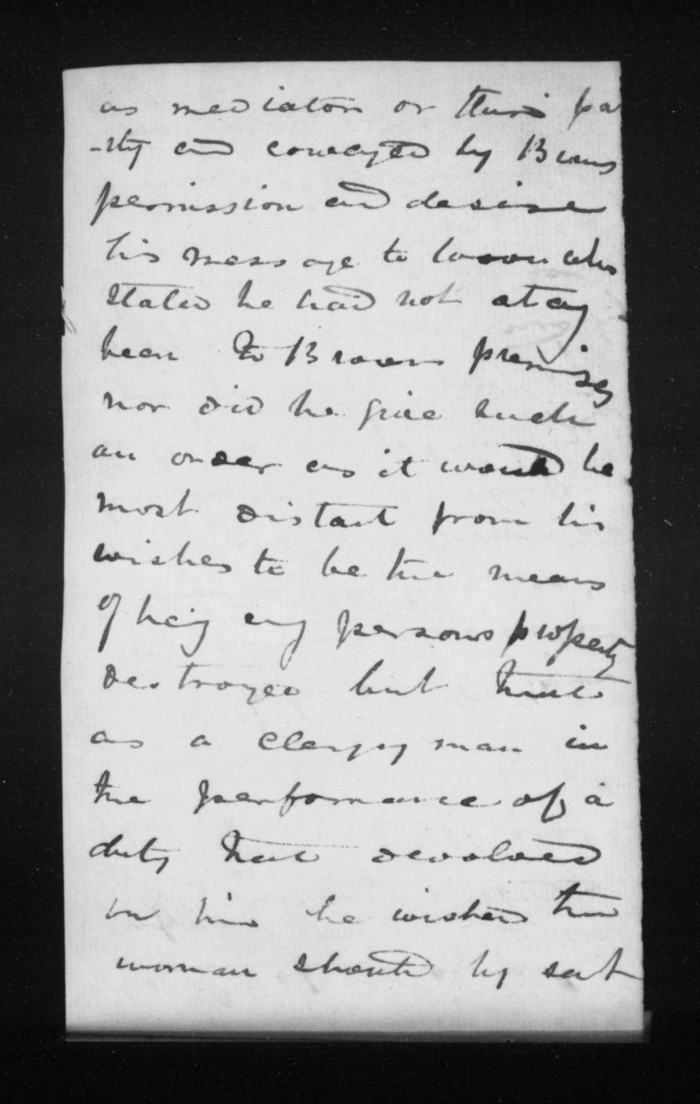 as mediator or third pa
-rty and conveyed by Browns
permission and desire
his message to who
stated he had not at any
been to Browns premises
nor did he give such
an order as it would be
most distant from his
wishes to be the means
of having any persons property
destroyed but that
as a clergyman in
the performance of a
duty that devolved
on him he wished the
woman should by sent